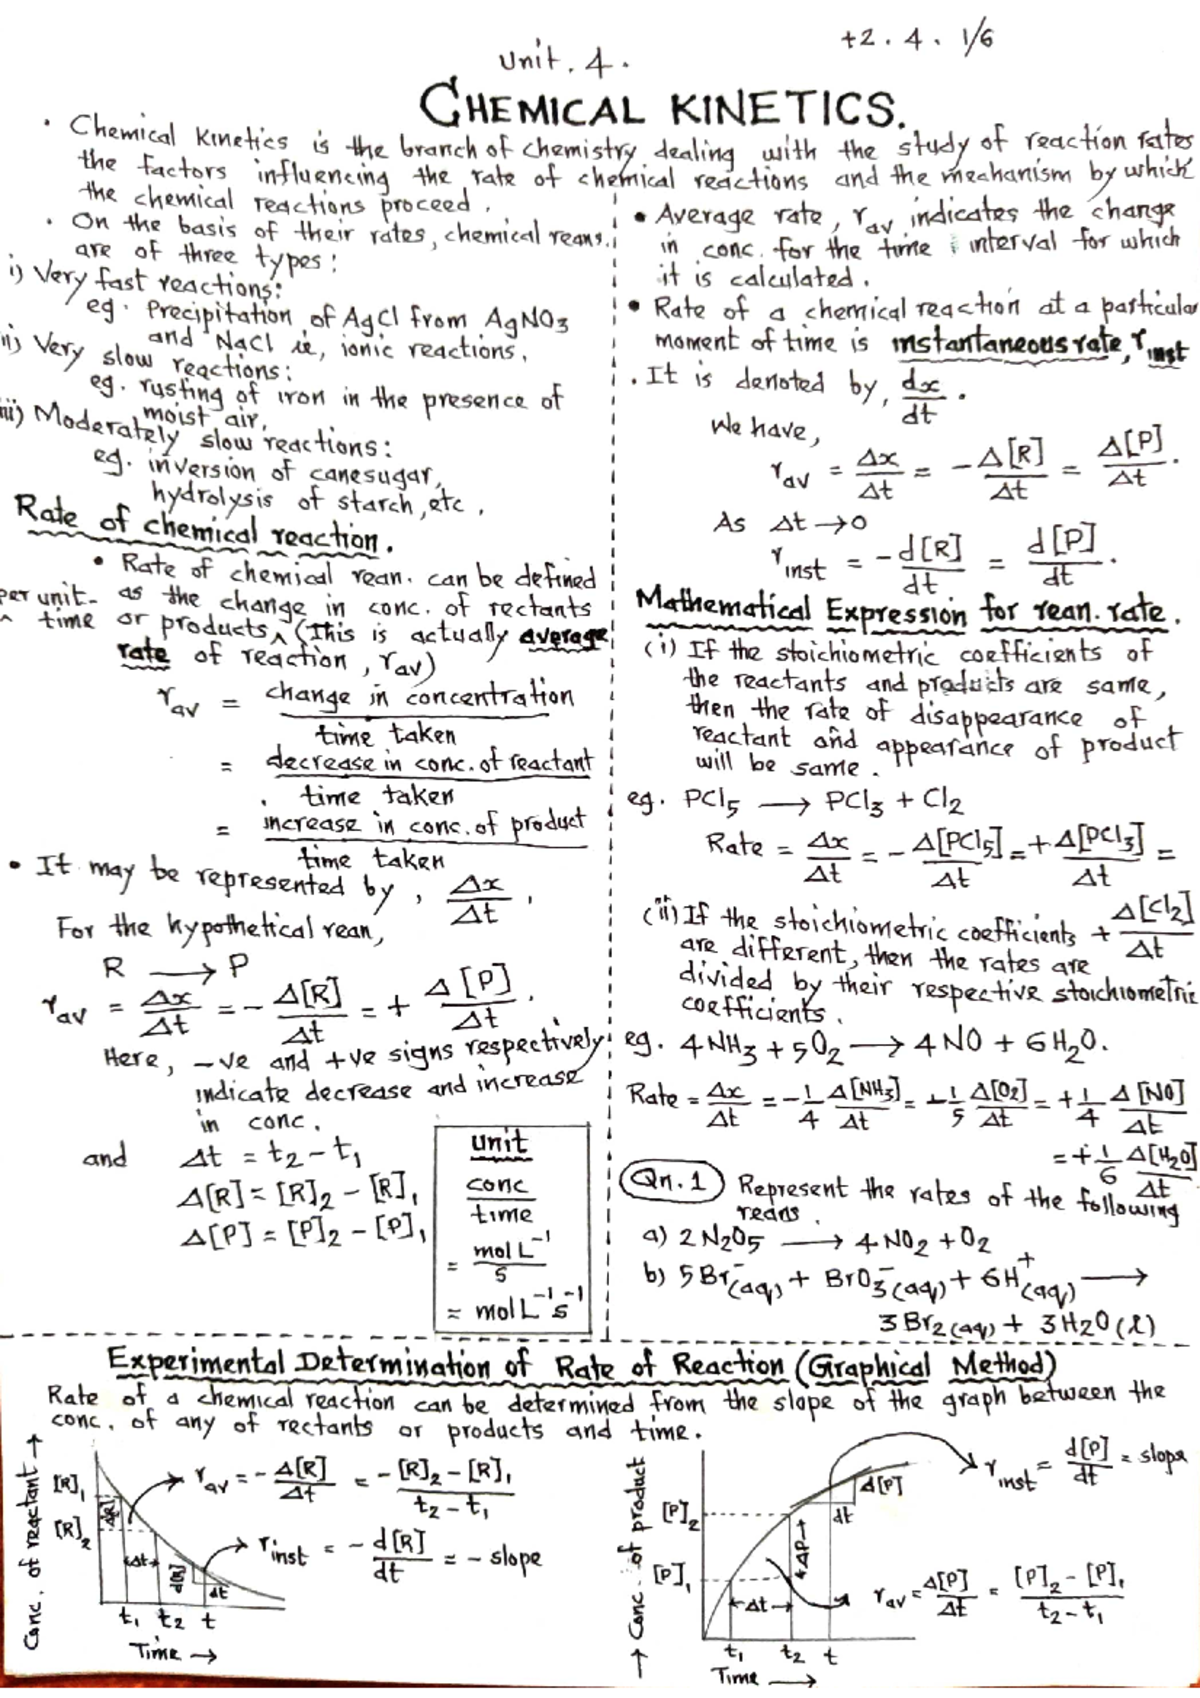 +2. 4. 1/6
Unit. 4.
CHEMICAL KINETICS.
• Chemical Kinetics is the branch of chemistry dealing with the study of reaction rates
the factors influencing the rate of chemical reactions and the mechanism by which
the chemical reactions proceed.
• On the basis of their rates, chemical reans.
are of three types:
i) Very fast reactions:
eg. Precipitation of AgCl from AgNO3
and NaCl ie, ionic reactions.
ii) Very slow reactions:
eg. rusting of iron in the presence of
moist air.
iii) Moderately slow reactions:
eg. inversion of canesugar,
hydrolysis of starch, etc.
Rate of chemical reaction.
• Rate of chemical rean. can be defined
as the change in conc. of rectants
or products ^ per unit time (This is actually average
rate of reaction, rav)
rav = change in concentration / time taken
= decrease in conc. of reactant / time taken
= increase in conc. of product / time taken
• It may be represented by, Δx/Δt.
For the hypothetical rean,
R → P
rav = Δx/Δt = - Δ[R]/Δt = + Δ[P]/Δt.
Here, -ve and +ve signs respectively
indicate decrease and increase
in conc.
and Δt = t2 - t1
Δ[R] = [R]2 - [R]1
Δ[P] = [P]2 - [P]1
unit
conc/time
= mol L⁻¹/s
= mol L⁻¹ s⁻¹
• Average rate, rav indicates the change
in conc. for the time interval for which
it is calculated.
• Rate of a chemical reaction at a particular
moment of time is instantaneous rate, rinst
. It is denoted by, dx/dt.
We have,
rav = Δx/Δt = - Δ[R]/Δt = Δ[P]/Δt.
As Δt → 0
rinst = - d[R]/dt = d[P]/dt.
Mathematical Expression for rean. rate.
(i) If the stoichiometric coefficients of
the reactants and products are same,
then the rate of disappearance of
reactant and appearance of product
will be same.
eg. PCl5 → PCl3 + Cl2
Rate = Δx/Δt = - Δ[PCl5]/Δt = + Δ[PCl3]/Δt =
+ Δ[Cl2]/Δt
(ii) If the stoichiometric coefficients
are different, then the rates are
divided by their respective stoichiometric
coefficients.
eg. 4NH3 + 5O2 → 4NO + 6H2O.
Rate = Δx/Δt = -1/4 Δ[NH3]/Δt = -1/5 Δ[O2]/Δt = +1/4 Δ[NO]/Δt
= +1/6 Δ[H2O]/Δt
Qn. 1 Represent the rates of the following
reans.
a) 2N2O5 → 4NO2 + O2
b) 5Br⁻(aq) + BrO3⁻(aq) + 6H⁺(aq) →
3Br2(aq) + 3H2O(l)
Experimental Determination of Rate of Reaction (Graphical Method)
Rate of a chemical reaction can be determined from the slope of the graph between the
conc. of any of rectants or products and time.
Conc. of reactant →
[R]1
[R]2
Δ[R]
Δt
d[R]
dt
t1 t2 t
Time →
rav = - Δ[R]/Δt = - [R]2 - [R]1 / t2 - t1
rinst = - d[R]/dt = - slope
→ Conc. of product
[P]2
[P]1
ΔP
Δt
d[P]
dt
t1 t2 t
Time →
rinst = d[P]/dt = slope
rav = Δ[P]/Δt = [P]2 - [P]1 / t2 - t1